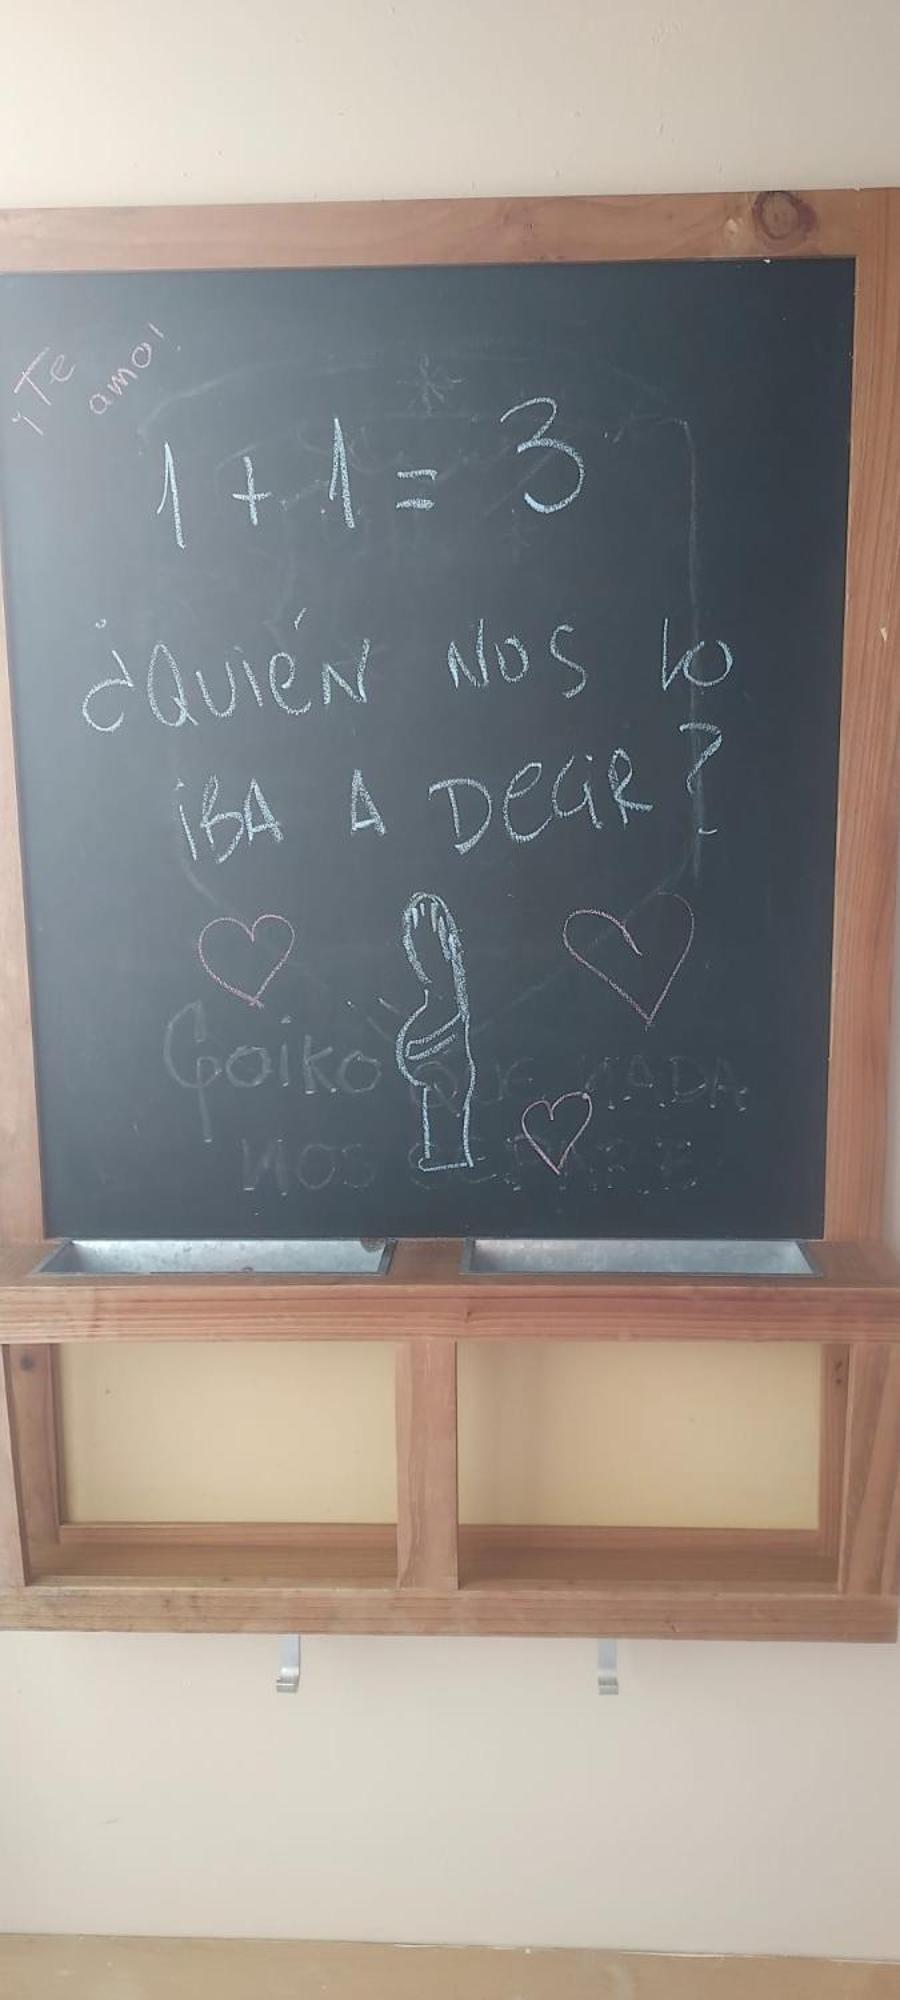 ¡Te amo!
1 + 1 = 3
¿QUIÉN NOS LO
IBA A DECIR?
Goiko QUE NADA
NOS SEPARE